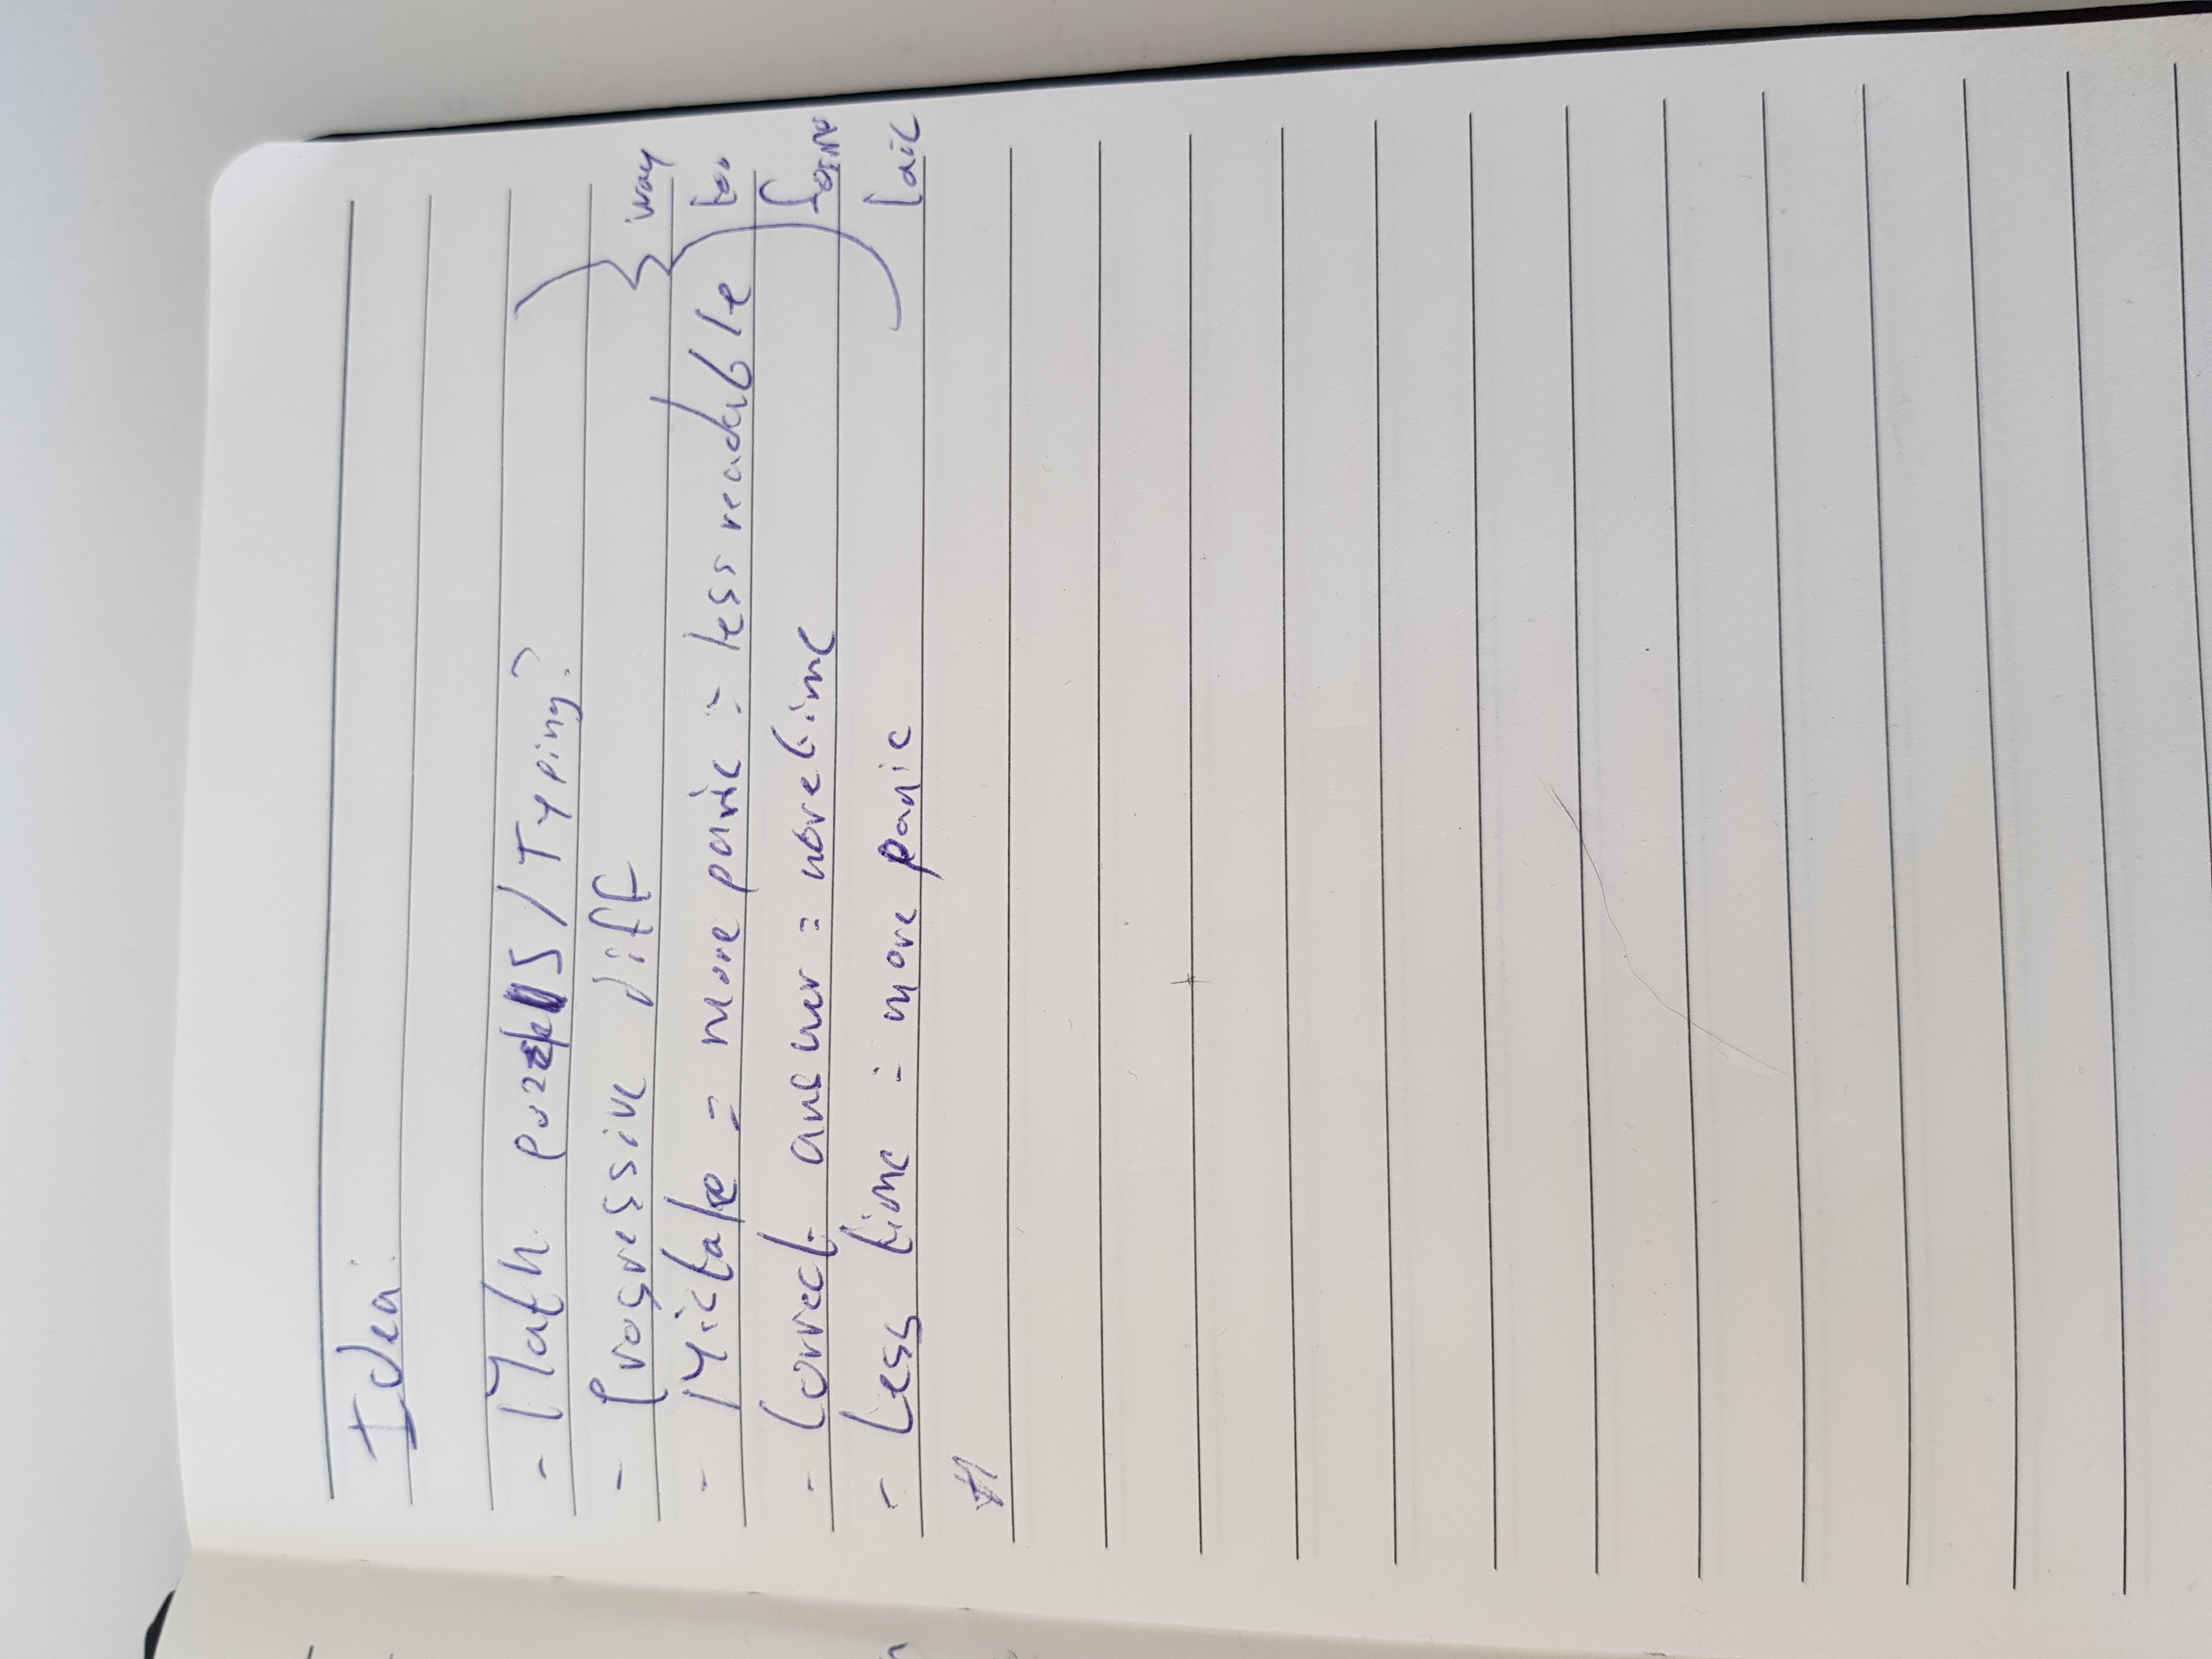 Idea:
- Math puzzels / Typing?
- Progressive diff
- Mistake = more panic = less readable
- Correct answer = more time
- Less time = more panic
way
too